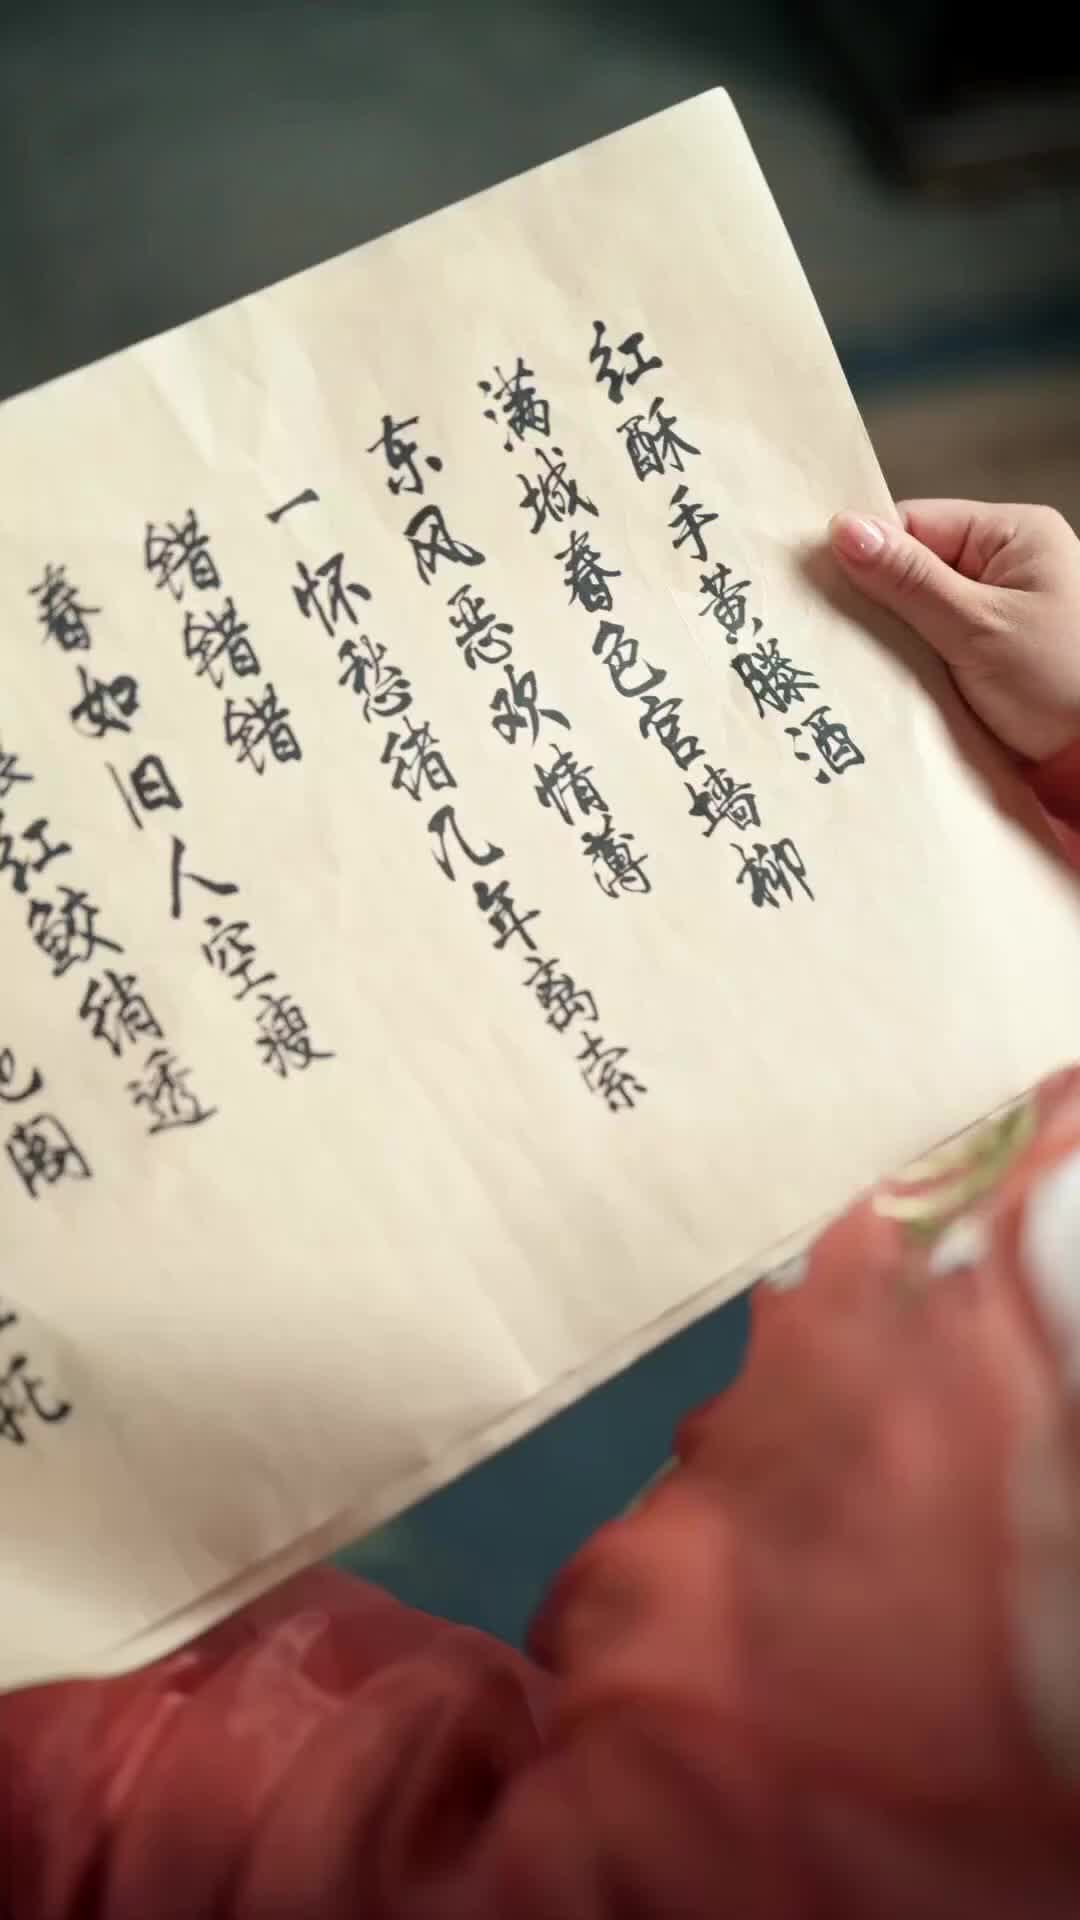 红酥手黄滕酒
满城春色宫墙柳
东风恶欢情薄
一怀愁绪几年离索
错错错
春如旧人空瘦
红鲛绡透
阁
托